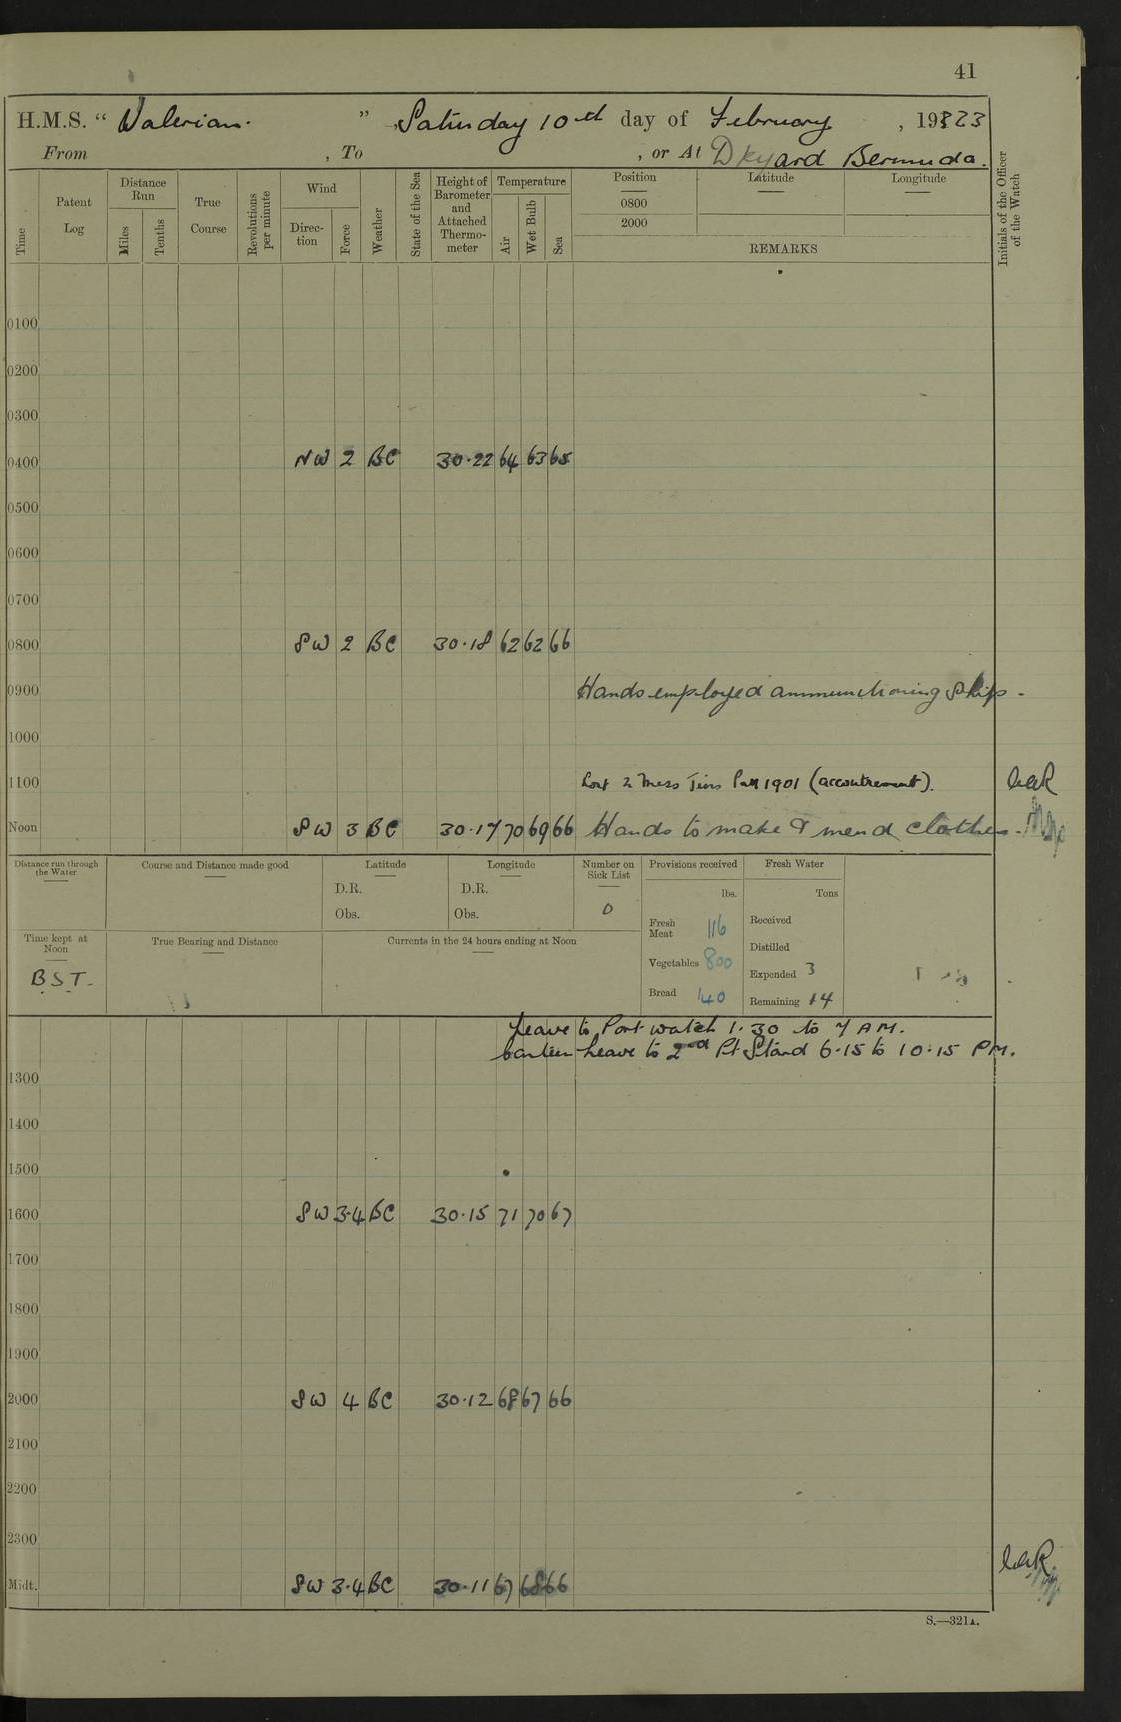 41
H.M.S. “ Valerian. ” , Saturday 10th day of February , 1923
From , To , or At Dkyard Bermuda.
Time
Patent Log
Distance Run
Miles
Tenths
True Course
Revolutions per minute
Wind
Direction
Force
Weather
State of the Sea
Height of Barometer and Attached Thermometer
Temperature
Air
Wet Bulb
Sea
Position
0800
2000
Latitude
Longitude
REMARKS
Initials of the Officer of the Watch
0100
0200
0300
0400 NW 2 BC 30.22 64 63 65
0500
0600
0700
0800 SW 2 BC 30.18 62 62 66
0900 Hands employed ammunitioning ship.
1000
1100 Lost 2 Mess Tins Patt 1901 (accoutrement).
Noon SW 3 BC 30.17 70 69 66 Hands to make & mend clothes.
Distance run through the Water
Course and Distance made good
Latitude
D.R.
Obs.
Longitude
D.R.
Obs.
Number on Sick List
0
Provisions received
lbs.
Fresh Meat 116
Vegetables 800
Bread 140
Fresh Water
Tons
Received
Distilled
Expended 3
Remaining 14
Time kept at Noon
B.S.T.
True Bearing and Distance
Currents in the 24 hours ending at Noon
Leave to Port watch 1.30 to 7 AM.
Canteen Leave to 2nd Pt Starbd 6.15 to 10.15 PM.
1300
1400
1500
1600 SW 3.4 BC 30.15 71 70 67
1700
1800
1900
2000 SW 4 BC 30.12 68 67 66
2100
2200
2300
Midt. SW 3.4 BC 30.11 67 68 66
S.—321A.